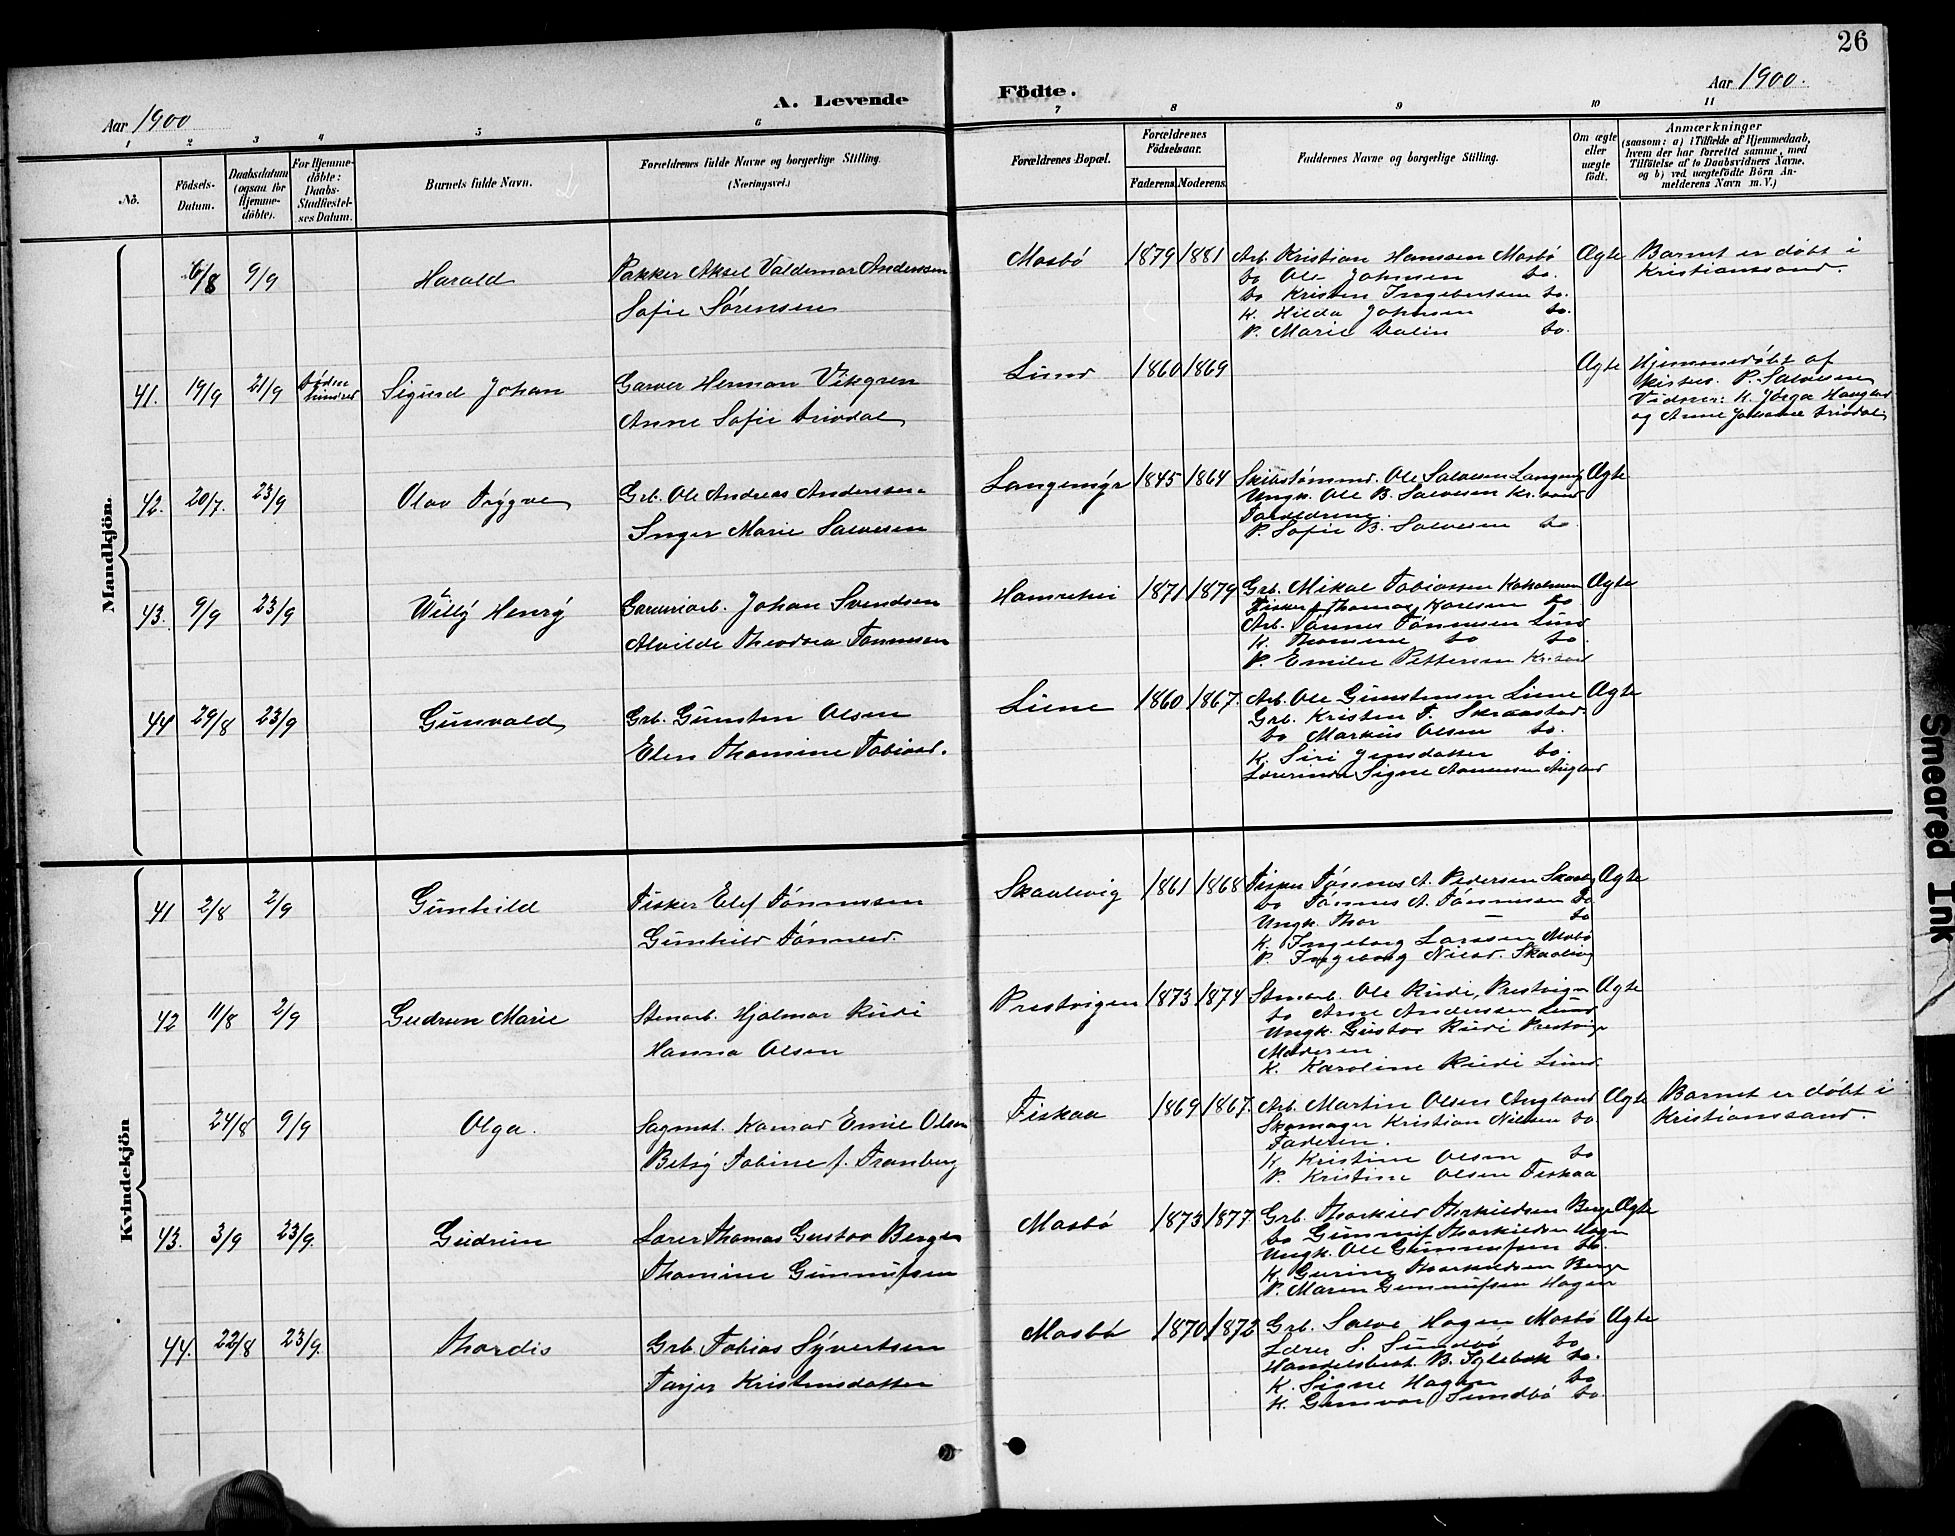 26
Aar 1900
A. Levende
Födte.
Aar 1900.
1 2 3 4 5 6 7 8 9 10 11
No.
Födsels-Datum.
Daabsdatum (ogsaa for Hjemme-döbte).
For Hjemme-döbte: Daabs-Stadfæstel-ses Datum.
Barnets fulde Navn.
Forældrenes fulde Navne og borgerlige Stilling. (Næringsvei.)
Forældrenes Bopæl.
Forældrenes Födselsaar.
Faderens. Moderens.
Faddernes Navne og borgerlige Stilling.
Om ægte eller uægte födt.
Anmærkninger
(saasom: a) i Tilfælde af Hjemmedaab, hvem der har forrettet samme, med Tilföielse af to Daabsvidners Navne, og b) ved uægtefödte Börn Anmelderens Navn m. V.)
Mandkjön.
6/8 9/9 Harald
Pakker Aksel Valdemar Anderssen
Sofie Sørensen
Mosbö 1879 1881
Arb. Kristian Hansen Mosbö
do Ole Johnsen do.
do Kristen Ingebertsen do.
K. Hilda Johnsen do.
P. Marie Dalin do.
Ægte
Barnet er døbt i
Kristianssand.
41. 19/9 21/9 Sigurd Johan
Garver Herman Vikgren
Anne Sofie
Lund 1860 1869
Ægte
Hjemmedøbt af
P. Salvesen
Vidner: K.
og Anne
42. 20/7. 23/9 Olav Trygve
Grb. Ole Andreas Anderssen
Inger Marie Salvesen
Langemyr 1845 1864
Skibstømmd. Ole Salvesen Langemyr
Ungk. Ole B. Salvesen Kr.sand
P. Sofie B. Salvesen do
Ægte
43. 9/9 23/9 Willy Henry
Garveriarb. Johan Svendsen
Alvilde Theodora Tønnesen
Hamrehei 1871 1879
Grb. Mikal Tobiassen
Fisker Thomas Karlsen do
Arb. Tønnes Tønnesen Lund
K. Thomine do do.
P. Emilie Pettersen Kr.sand
Ægte
44 29/8 23/9 Gunvald
Grb. Gunsten Olsen
Elen Thomine Tobiasd.
Liene 1860 1867.
Arb. Ole Gunstensen Liene
Grb. Kristen T. Skraastad
do Markus Olsen do.
K. Siri Jensdatter do.
Lærerinde Signe Aanensen Augland
Ægte
Kvindekjön
41 2/8 2/9 Gunhild
Fisker Elef Tønnesen
Gunhild Tønnesd.
Skaalevig 1861 1868
Fisker Tønnes A. Pedersen Skaalev
do Tønnes A. Tønnesen do
Ungk. Thor — do
K. Ingeborg Larssen Mosbö
P. Ingeborg Nilsd. Skaalevig
Ægte
42 11/8 2/9 Gudrun Marie
Stenarb. Hjalmar Rudi
Hanna Olsen
Prestvigen 1873 1874
Stenarb. Ole Rudi, Prestvigen
do Arne Andersen Lund
Ungk. Gustav Rudi Prestvig
Moderen
K. Karoline Rudi Lund.
Ægte
24/8 9/9 Olga.
Sagmst. Konrad Emil Olsen
Betsy Tobine f. Tranberg
Fiskaa 1869 1867.
Arb. Martin Olsen Augland
Skomager Kristian Nielsen do.
Faderen.
K. Kristine Olsen do
P. Kristine Olsen Fiskaa
Ægte
Barnet er døbt i
Kristianssand.
43. 3/9 23/9. Gudrun
Lærer Thomas Gustav Berge
Thomine Gunnufsen
Mosbö 1873 1877.
Grb. Thorkild Therkildsen Berge
do Gunnuf Thorkildsen Hagen
Ungk. Ole Gunnufsen do.
K. Gurine Thorkildsen Berge
P. Maren Gunnufsen Hagen
Ægte
44. 22/8 23/9. Thordis
Grb. Tobias Syvertsen
Tarjer Kristensdatter
Mosbö 1870 1872
Grb. Salve Hagen Mosbö
Lærer S. Sundbö do
Handelsbest. B. Iglebæk do.
K. Signe Hagen do
K. Gunvor Sundbö do.
Ægte
Smeared Ink